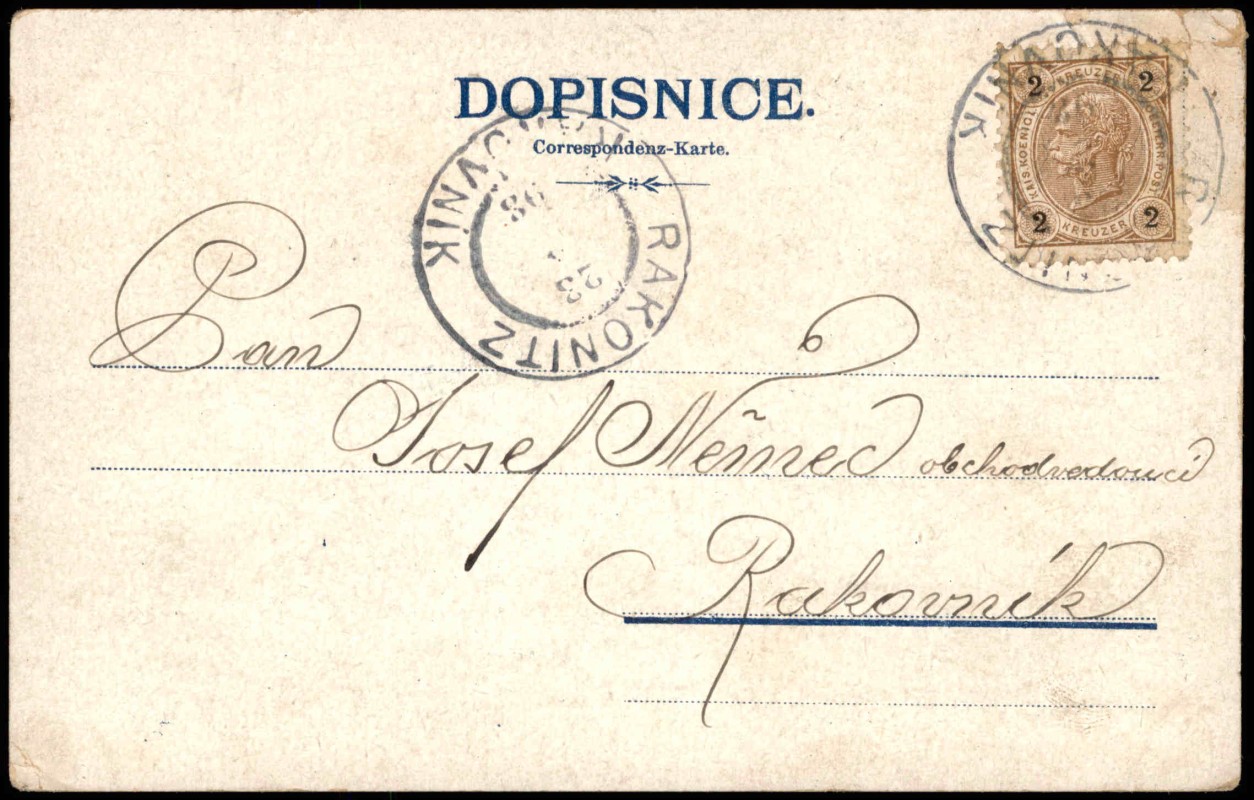 DOPISNICE.
Correspondenz-Karte.
RAKOVNÍK RAKONITZ
98
23
KAIS. KOENIGL.
KREUZER
2 2
2 2
KREUZER
Pan
Josef Němec obchodvedoucí
Rakovník